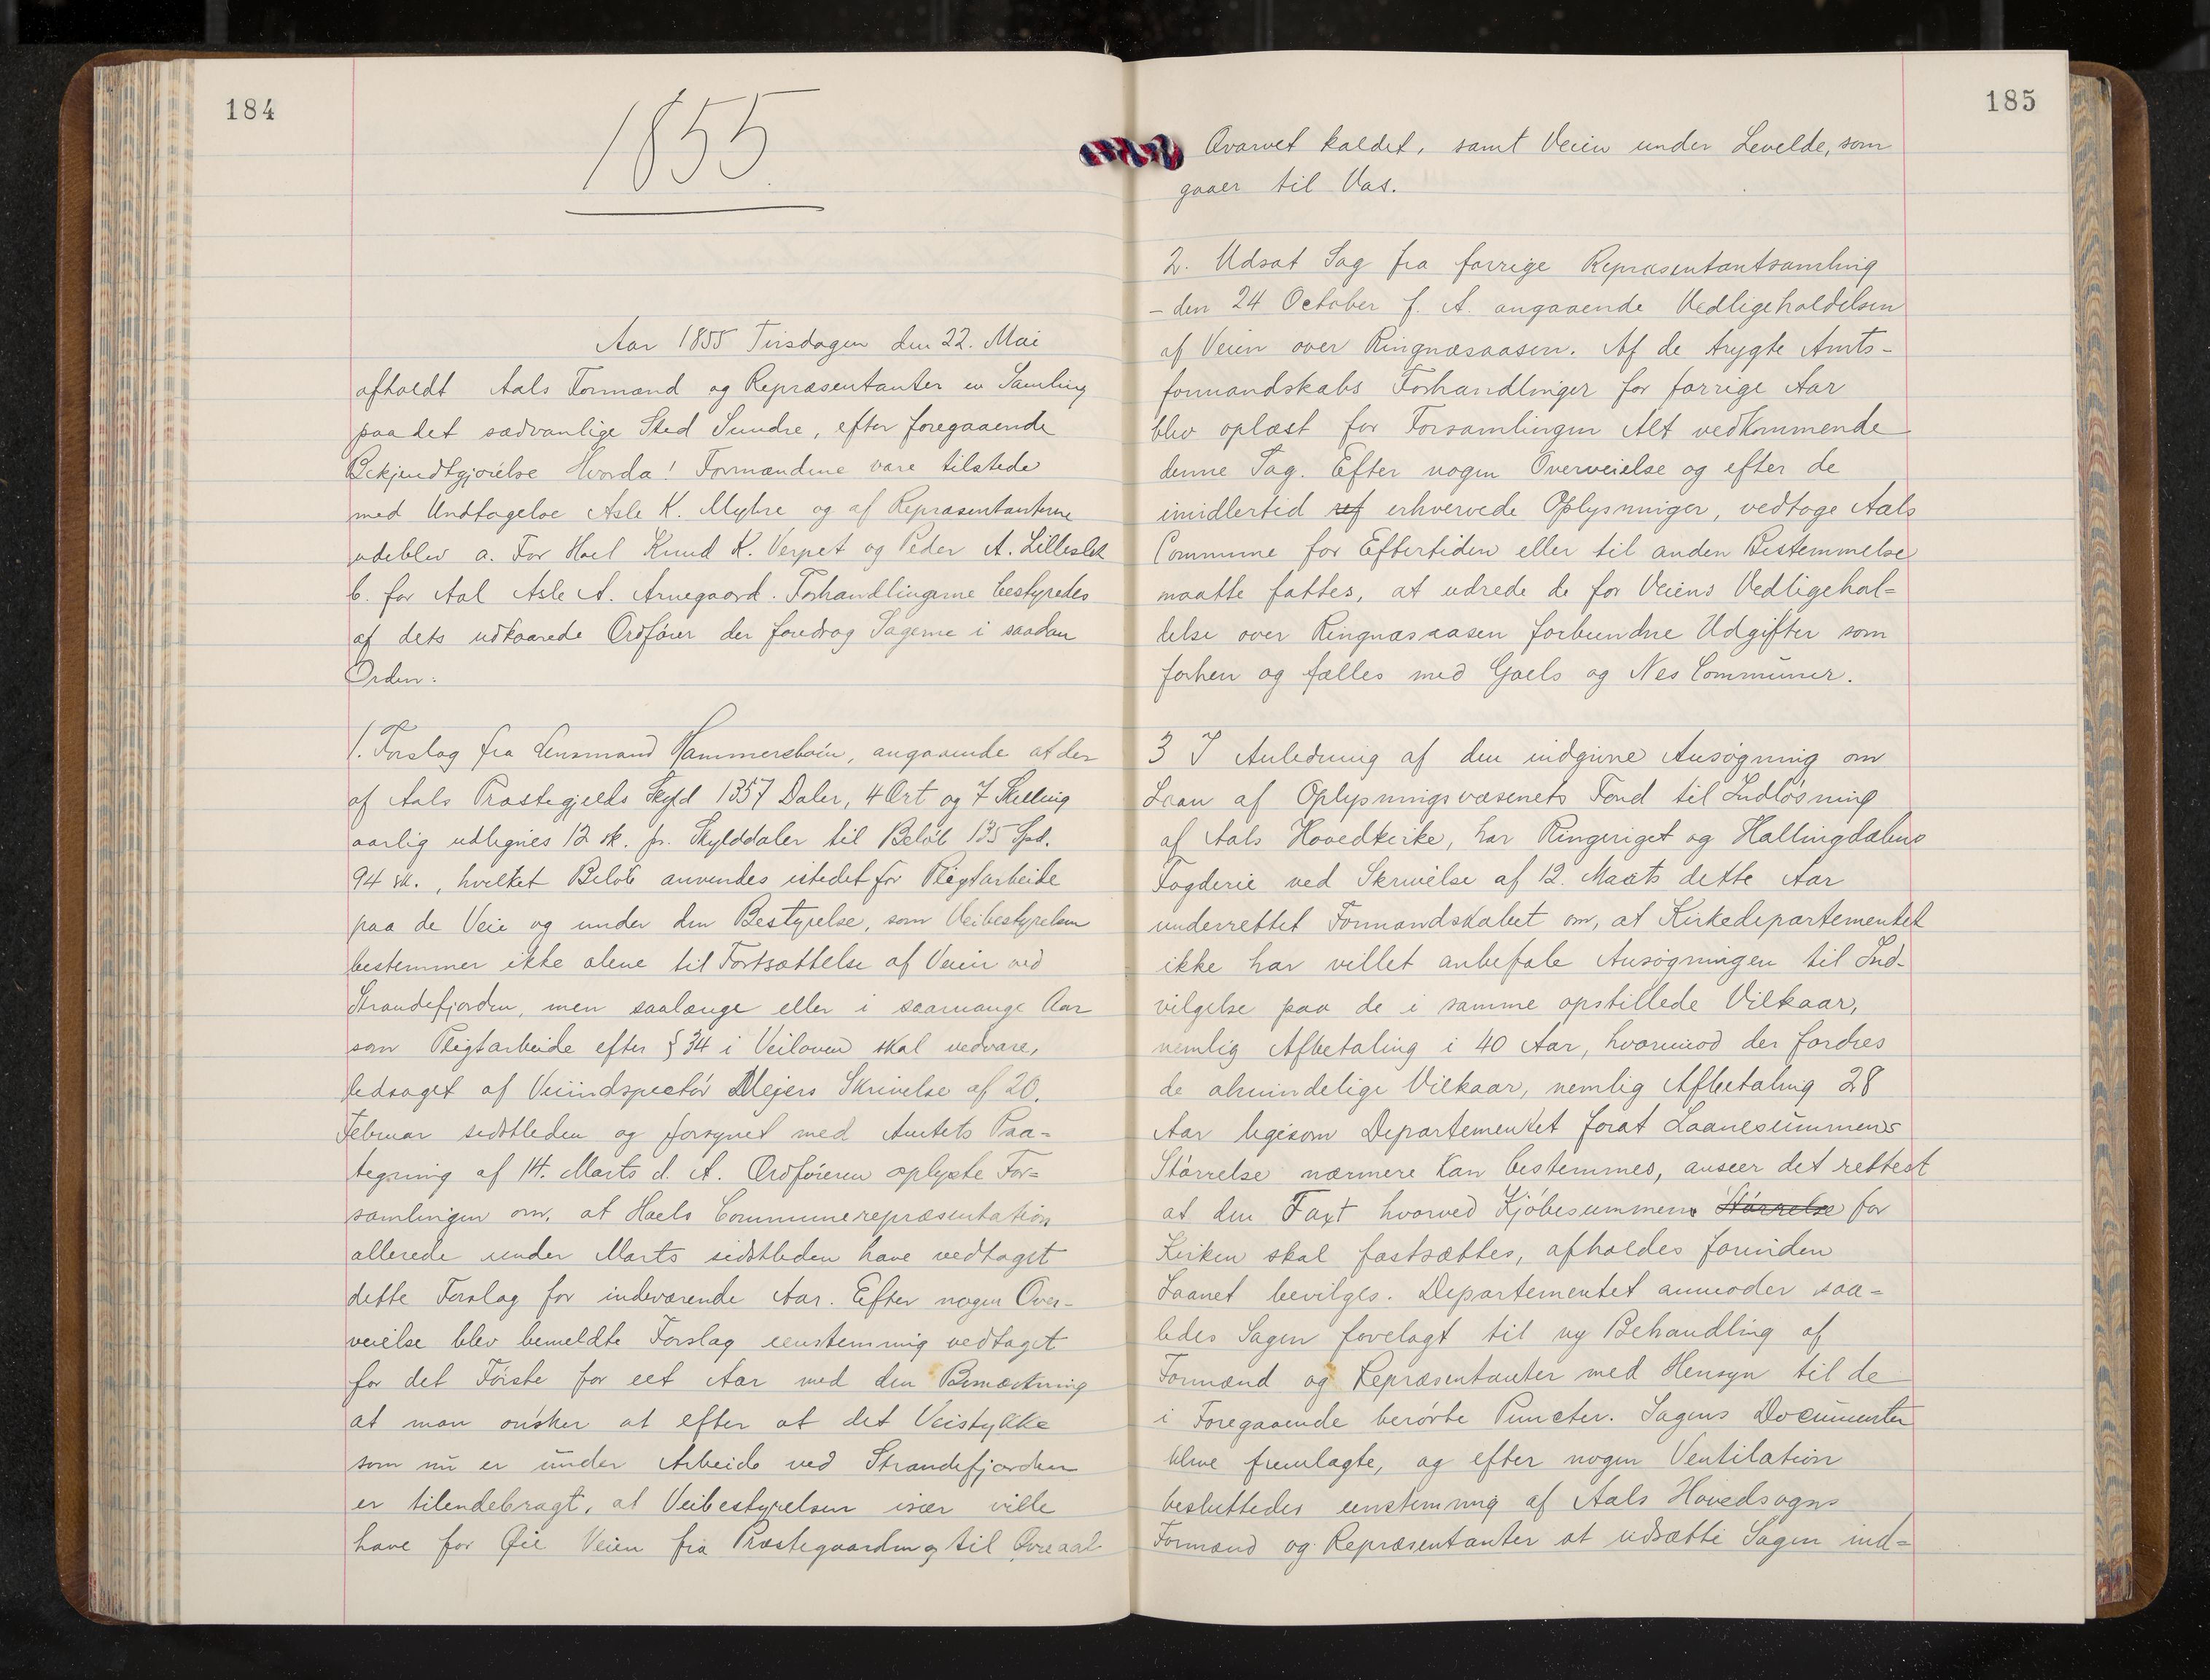 184
1855
Aar 1855 Tirsdagen den 22. Mai
afholdt Aals Formænd og Repræsentanter en Samling
paa det sædvanlige Sted Sundre, efter foregaaende
Bekjendtgjørelse Hvorda! Formændene vare tilstede
med Undtagelse Asle K. Myhre og af Repræsentanterne
udeblev a. For Hoel Knud K. Verpet og Peder A. Lilleslet
b. for Aal Asle A. Arnegaard. Forhandlingerne bestyredes
af dets udkaarede Ordfører der foredrog Sagerne i saadan
Orden:
1. Forslag fra Lensmand Hammersbøin, angaaende at der
af Aals Præstegjelds Skyld 1357 Daler, 4 Ort og 7 Skilling
aarlig udlignes 12 sk. pr. Skylddaler til Beløb 135 Spd.
94 sk., hvilket Beløb anvendes istedet for Pligtarbeide
paa de Veie og under den Bestyrelse, som Veibestyrelsen
bestemmer ikke alene til Fortsættelse af Veien ved
Strandefjorden, men saalænge eller i saamange Aar
som Pligtarbeide efter § 34 i Veiloven skal vedvare,
ledsaget af Veiindspectør Mejers Skrivelse af 20.
Februar sidstleden og forsynet med Amtets Paa-
tegning af 14. Marts d. A. Ordføreren oplyste For=
samlingen om, at Hoels Communerepræsentation
allerede under Marts sidstleden have vedtaget
dette Forslag for indeværende Aar. Efter nogen Over-
veielse blev bemeldte Forslag eenstemmig vedtaget
for det Første for eet Aar med den Bemærkning
at man ønsker at efter at det Veistykke
som nu er under Arbeide ved Strandefjorden
er tilendebragt, at Veibestyrelsen især ville
have for Øie Veien fra Præstegaarden og til Øvreaal
185
Qvarvet kaldet, samt Veien under Levelde, som
gaaer til Vas.
2. Udsat Sag fra forrige Repræsentantsamling
- den 24 October f. A. angaaende Vedligeholdelsen
af Veien over Ringnæsaasen. Af de trygte Amts-
formandskabs Forhandlinger for forrige Aar
blev oplæst for Forsamlingen Alt vedkommende
denne Sag. Efter nogen Overveielse og efter de
imidlertid ref erhvervede Oplysninger, vedtoge Aals
Commune for Eftertiden eller til anden Bestemmelse
maatte fattes, at udrede de for Veiens Vedligehol=
delse over Ringnæsaasen forbundne Udgifter som
forhen og fælles med Goels og Nes Communer.
3 I Anledning af den indgivne Ansøgning om
Laan af Oplysningsvæsenets Fond til Indløsning
af Aals Hovedkirke, har Ringeriget og Hallingdalens
Fogderie ved Skrivelse af 12. Marts dette Aar
underrettet Formandskabet om, at Kirkedepartementet
ikke har villet anbefale Ansøgningen til Ind-
vilgelse paa de i samme opstillede Vilkaar,
nemlig Afbetaling i 40 Aar, hvorimod der fordres
de almindelige Vilkaar, nemlig Afbetaling 28
Aar ligesom Departementet forat Laanesummens
Størrelse nærmere kan bestemmes, anseer det rettest
at den Taxt hvorved Kjøbesummen Størrelse for
Kirken skal fastsættes, afholdes forinden
Laanet bevilges. Departementet anmoder saa=
ledes Sagen forelagt til ny Behandling af
Formænd og Repræsentanter med Hensyn til de
i Foregaaende berørte Puncter. Sagens Documenter
bleve fremlagte, og efter nogen Ventilation
besluttedes eenstemmig af Aals Hovedsogns
Formænd og Repræsentanter at udsætte Sagen ind=